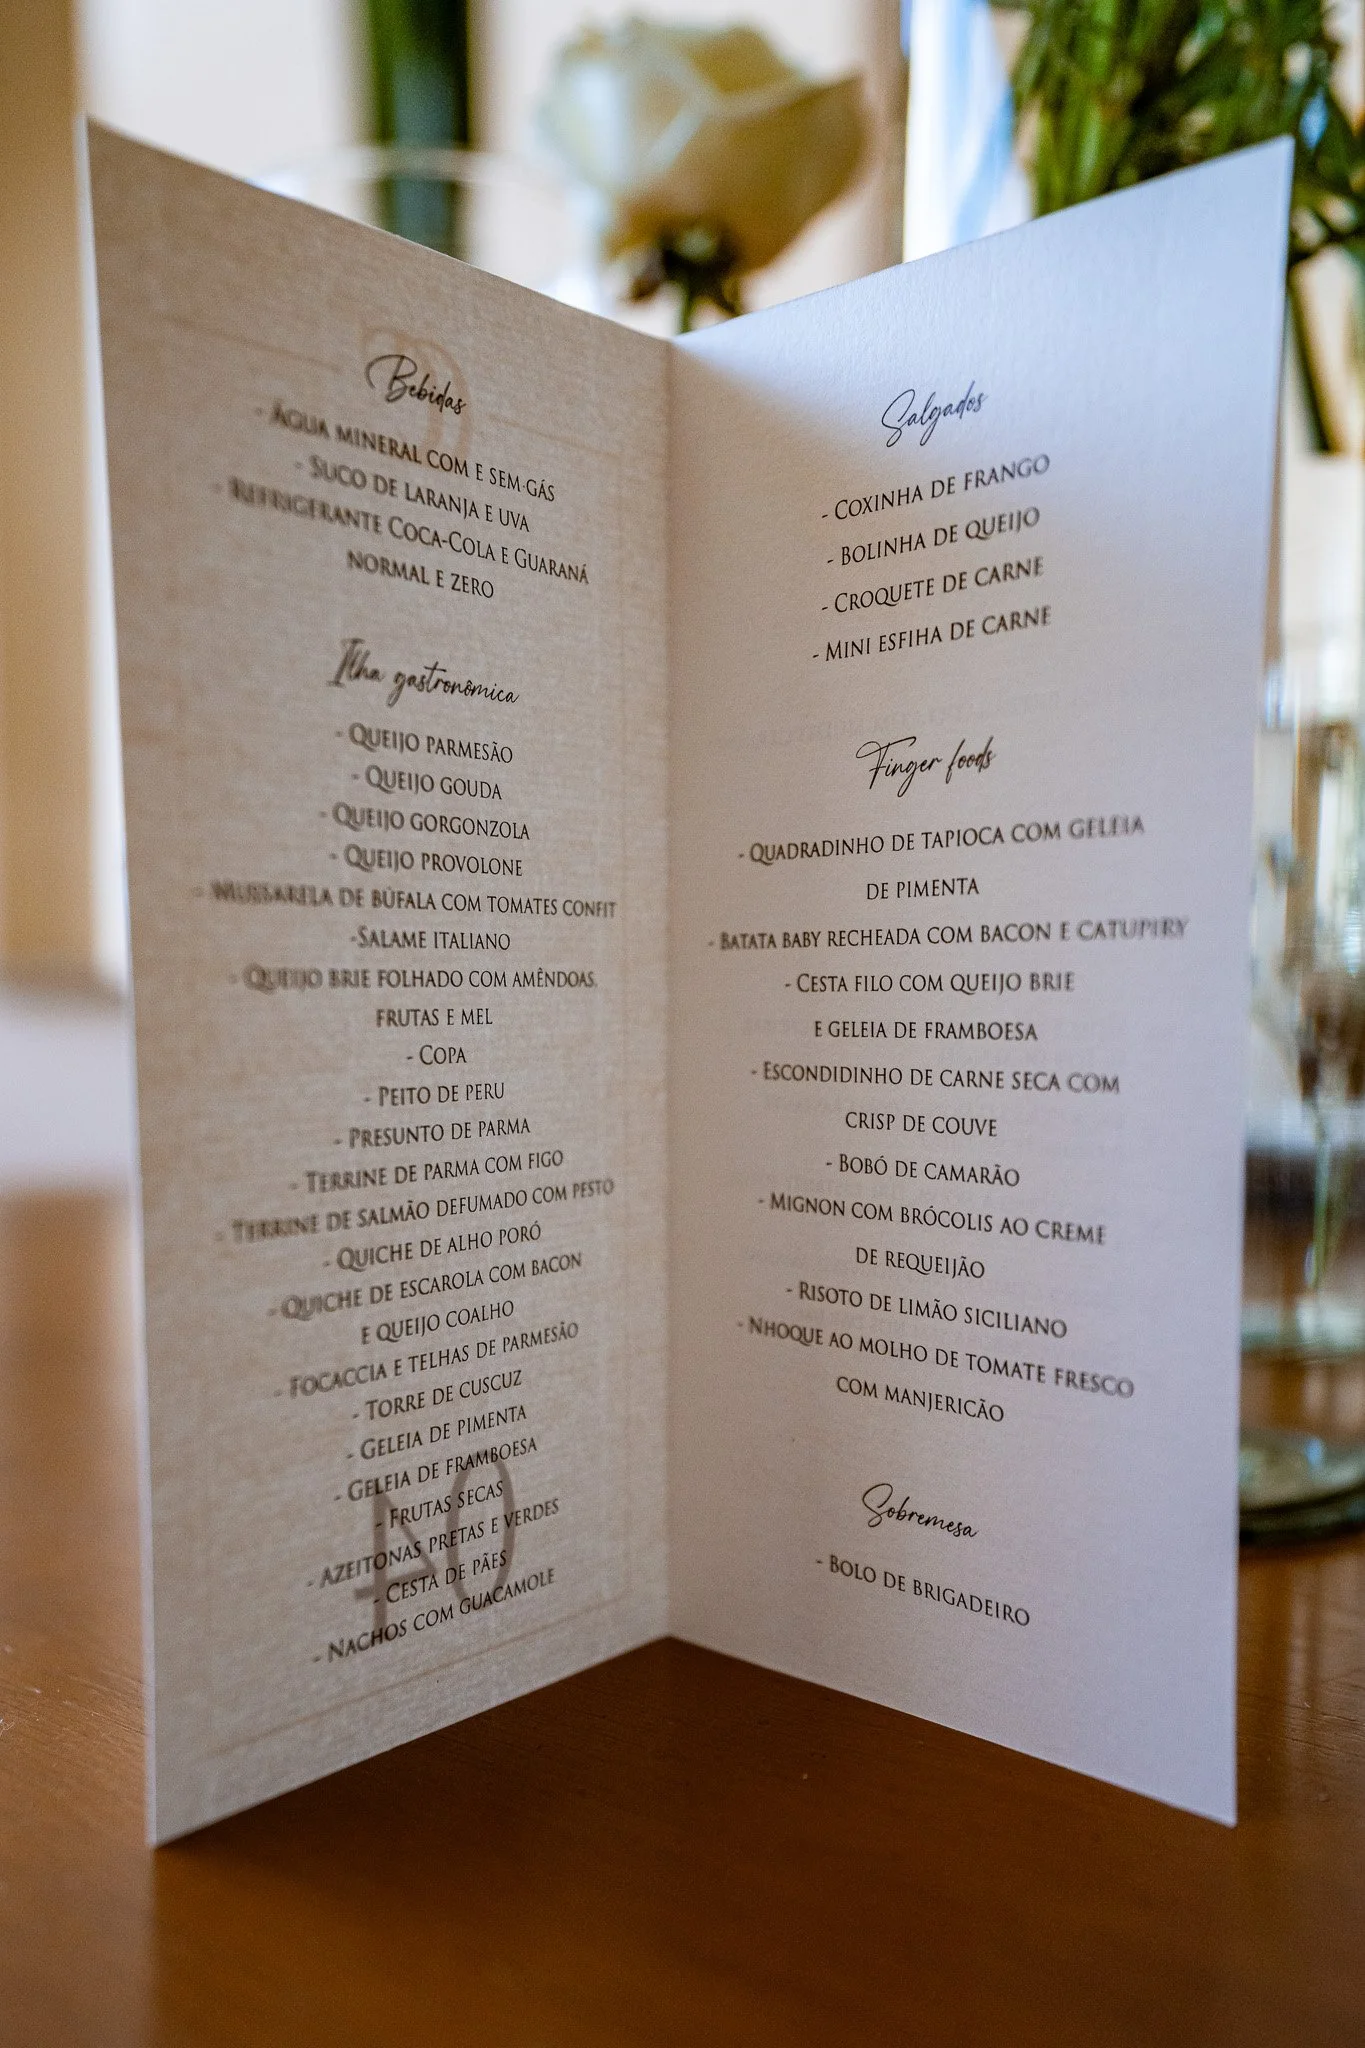 Bebidas
- Água mineral com e sem gás
- Suco de laranja e uva
- Refrigerante Coca-Cola e Guaraná
normal e zero
Ilha gastronômica
- Queijo parmesão
- Queijo gouda
- Queijo gorgonzola
- Queijo provolone
- Mussarela de búfala com tomates confit
-Salame italiano
- Queijo brie folhado com amêndoas,
frutas e mel
- Copa
- Peito de peru
- Presunto de parma
- Terrine de parma com figo
- Terrine de salmão defumado com pesto
- Quiche de alho poró
- Quiche de escarola com bacon
e queijo coalho
- Focaccia e telhas de parmesão
- Torre de cuscuz
- Geleia de pimenta
- Geleia de framboesa
- Frutas secas
- Azeitonas pretas e verdes
- Cesta de pães
- Nachos com guacamole
40
Salgados
- Coxinha de frango
- Bolinha de queijo
- Croquete de carne
- Mini esfiha de carne
Finger foods
- Quadradinho de tapioca com geleia
de pimenta
- Batata baby recheada com bacon e catupiry
- Cesta filo com queijo brie
e geleia de framboesa
- Escondidinho de carne seca com
crisp de couve
- Bobó de camarão
- Mignon com brócolis ao creme
de requeijão
- Risoto de limão siciliano
- Nhoque ao molho de tomate fresco
com manjericão
Sobremesa
- Bolo de brigadeiro